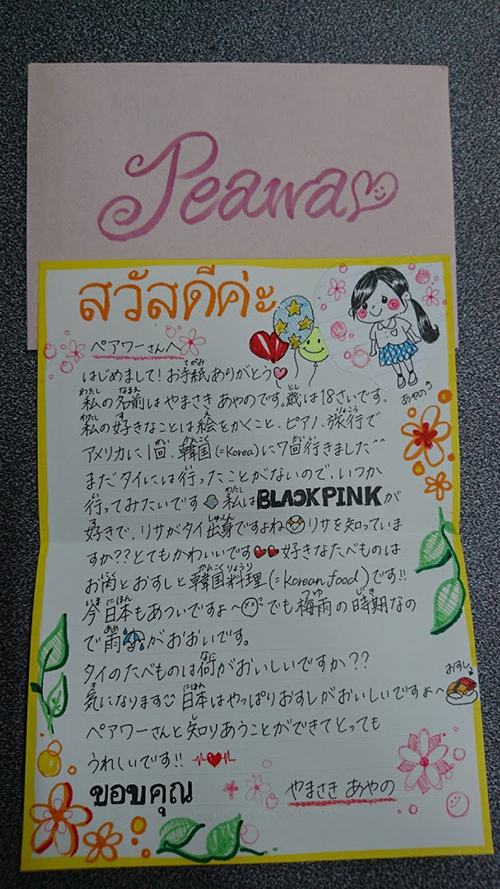 Peawa
สวัสดีค่ะ
ペアワーさんへ
はじめまして! お手紙ありがとう
私の名前はやまさきあやのです。歳は18さいです。
私の好きなことは絵をかくこと、ピアノ、旅行で
アメリカに1回、韓国(=Korea)に7回行きました^^
まだタイには行ったことがないので、いつか
行ってみたいです 私はBLACKPINKが
好きで、リサがタイ出身ですよね リサを知っていま
すか??とてもかわいいです 好きなたべものは
お肉とおすしと韓国料理(=Korean food)です!!
今日本もあついですよ〜 でも梅雨の時期なの
で雨がおおいです。
タイのたべものは何がおいしいですか??
気になります 日本はやっぱりおすしがおいしいですよ〜
ペアワーさんと知りあうことができてとっても
うれしいです!!
ขอบคุณ
やまさき あやの
あやの
おすし